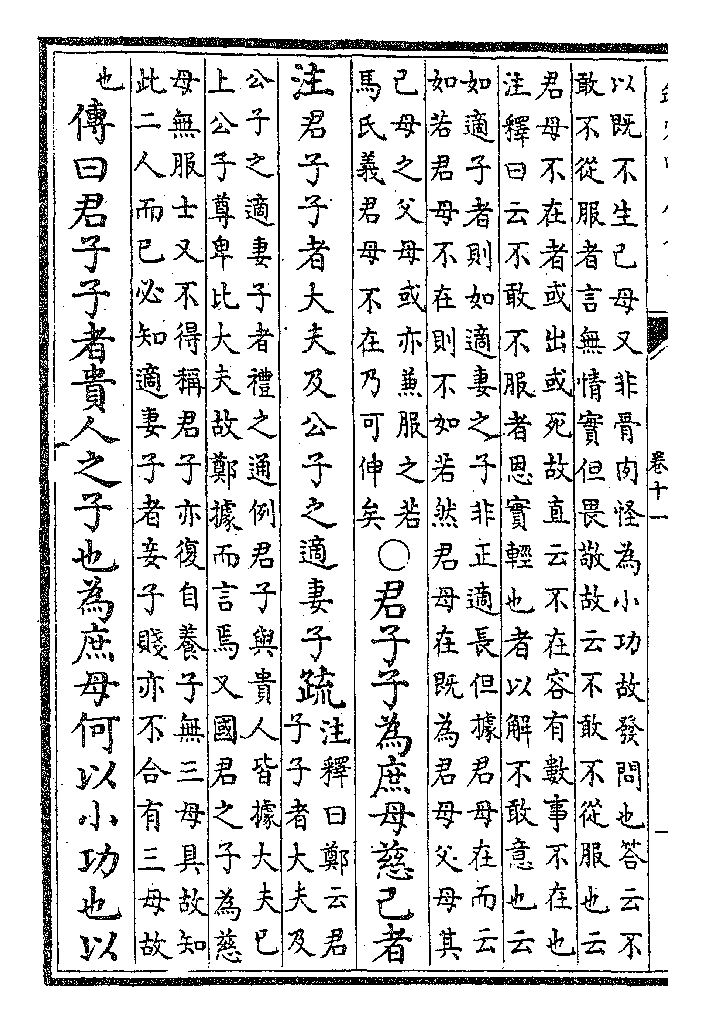 卷十一
一
以既不生已母又非骨肉怪為小功故發問也答云不
敢不從服者言無情實但畏敬故云不敢不從服也云
君母不在者或出或死故直云不在容有數事不在也
注釋曰云不敢不服者恩實輕也者以解不敢意也云
如適子者則如適妻之子非正適長但據君母在而云
如若君母不在則不如若然君母在既為君母父母其
已母之父母或亦兼服之若
馬氏義君母不在乃可伸矣
○君子子為庶母慈已者
注君子子者大夫及公子之適妻子疏
注釋曰鄭云君
子子者大夫及
公子之適妻子者禮之通例君子與貴人皆據大夫已
上公子尊卑比大夫故鄭據而言焉又國君之子為慈
母無服士又不得稱君子亦復自養子無三母具故知
此二人而已必知適妻子者妾子賤亦不合有三母故
也
傳曰君子子者貴人之子也為庶母何以小功也以